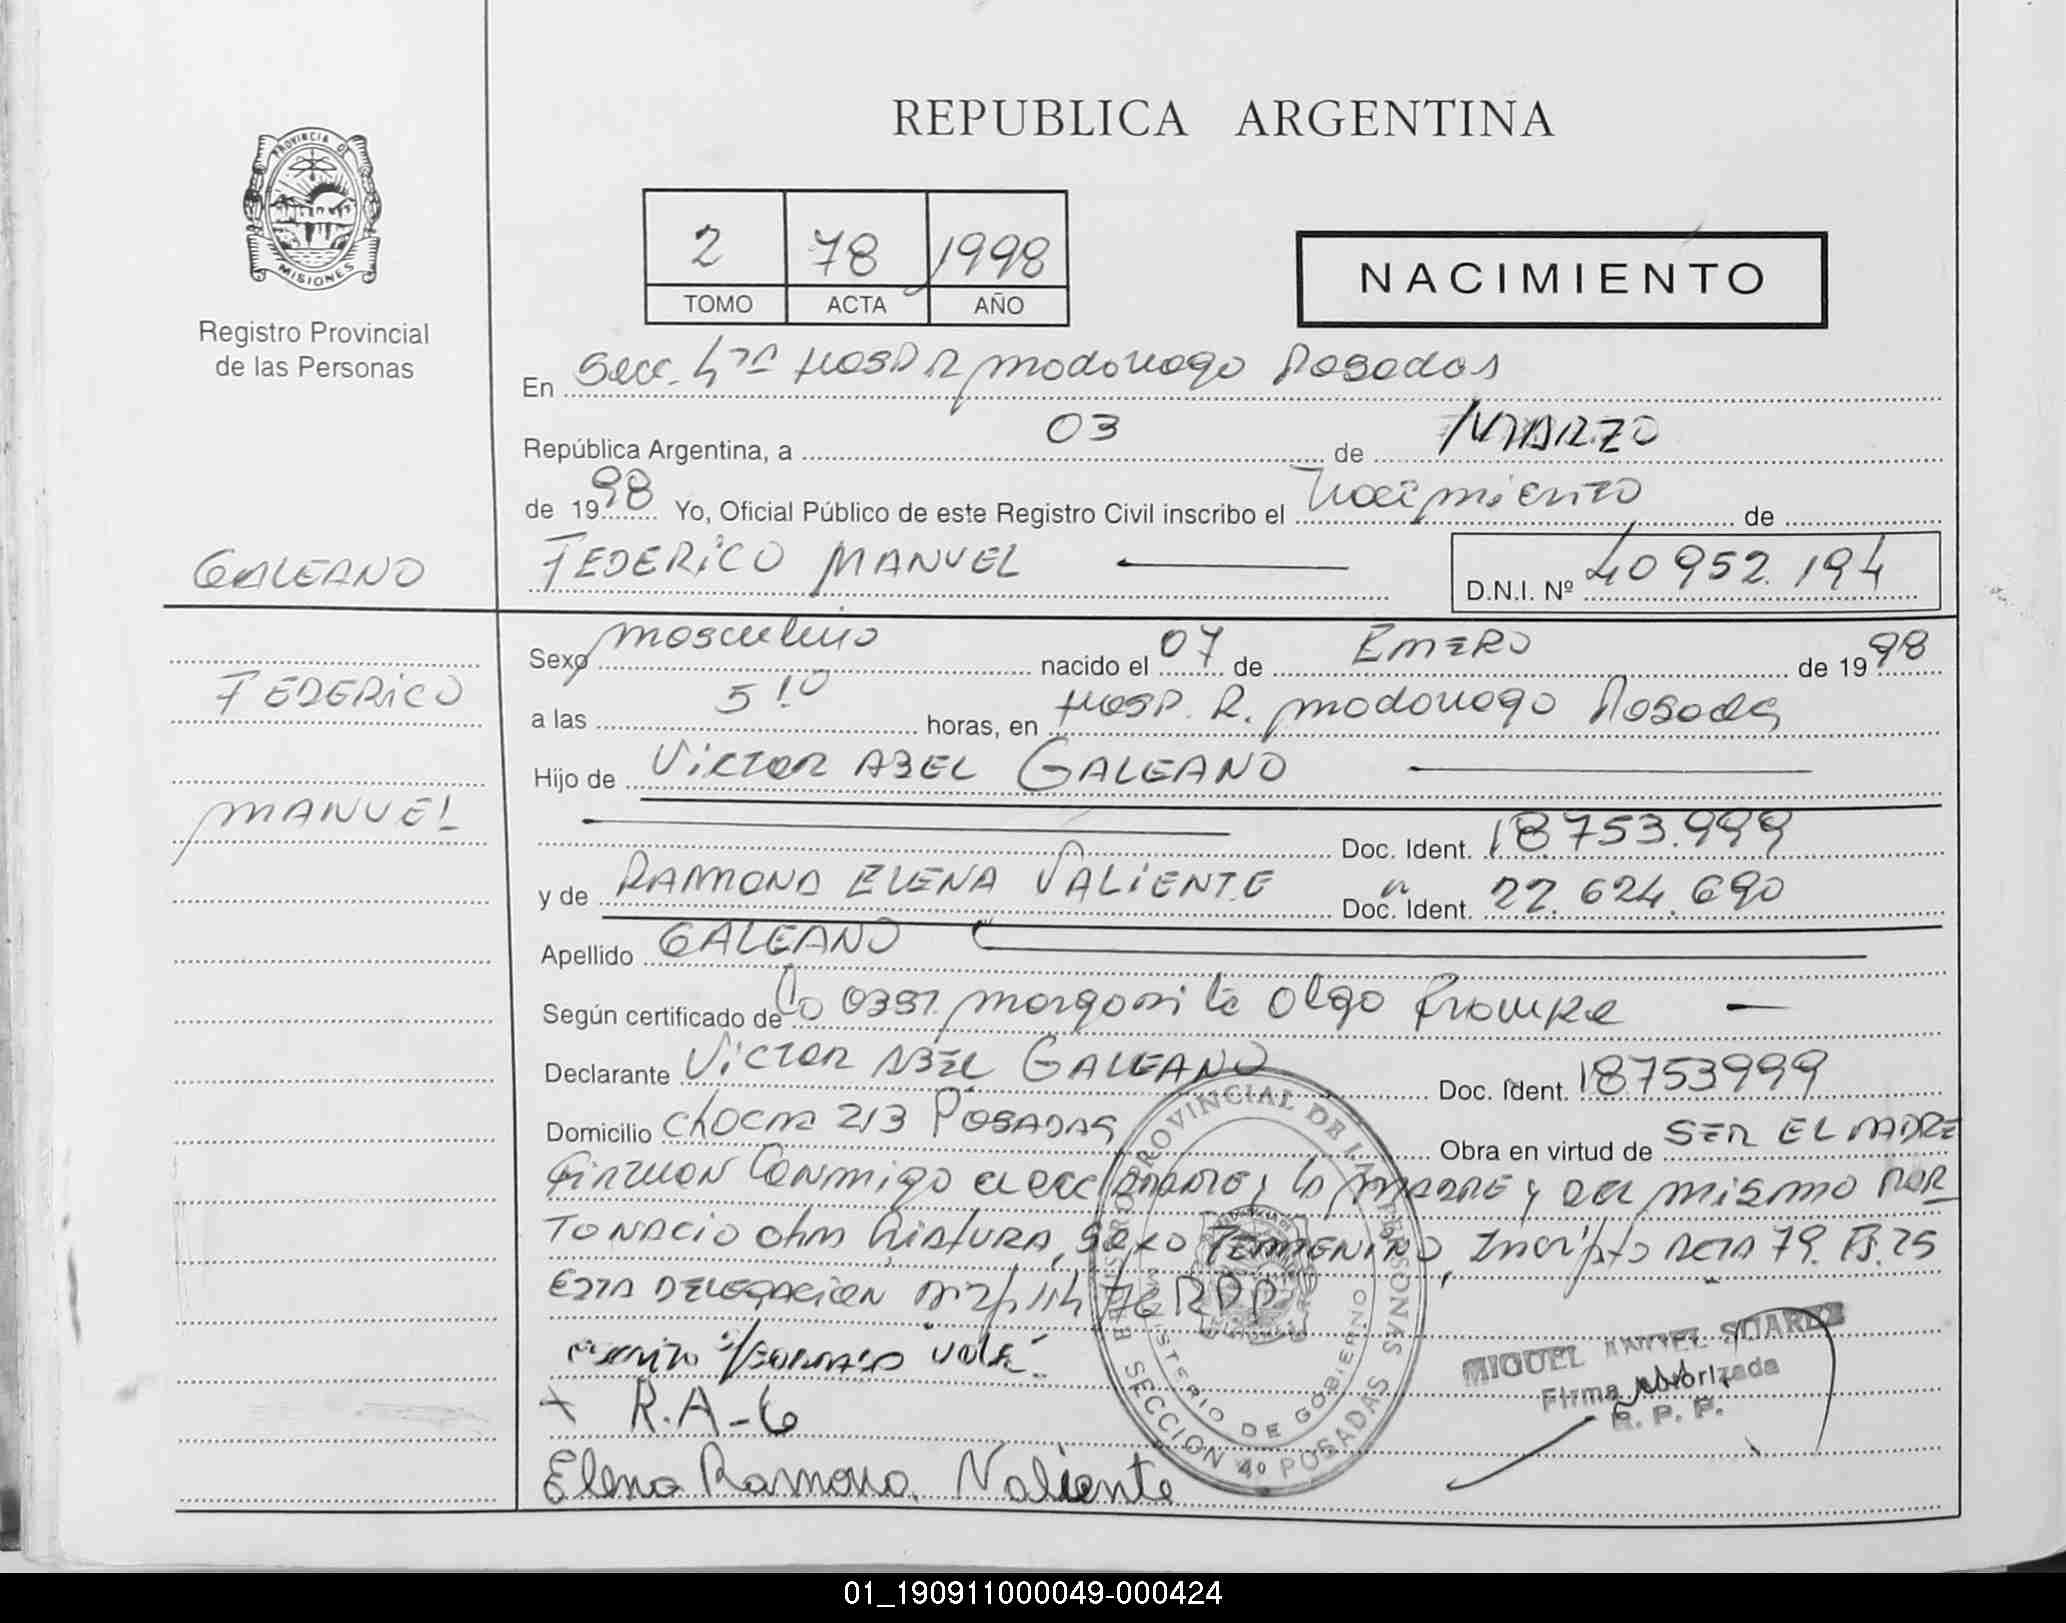 REPUBLICA ARGENTINA
PROVINCIA DE
MISIONES
Registro Provincial
de las Personas
2 78 1998
TOMO ACTA AÑO
NACIMIENTO
En Secc. 4ta Hosp R Madariaga Posadas
República Argentina, a 03 de MARZO
de 1998 Yo, Oficial Público de este Registro Civil inscribo el Nacimiento de
GALEANO
FEDERICO MANUEL
D.N.I. Nº 40952.194
FEDERICO
MANUEL
Sexo masculino nacido el 07 de ENERO de 1998
a las 5:10 horas, en Hosp. R. Madariaga Posadas
Hijo de VICTOR ABEL GALEANO
Doc. Ident. 18.753.999
y de RAMONA ELENA VALIENTE Doc. Ident. 22.624.690
Apellido GALEANO
Según certificado de Margarita Olga
Declarante VICTOR ABEL GALEANO Doc. Ident. 18753999
Domicilio CHACRA 213 POSADAS Obra en virtud de SER EL PADRE
Firman Conmigo el PADRE y la MADRE y del mismo PAR
TO NACIO otra CRIATURA, SEXO FEMENINO, Inscripto ACTA 79.
ESTA DELEGACION
vale
R.A-G
Elena Ramona Valiente
REGISTRO PROVINCIAL DE LAS PERSONAS
MINISTERIO DE GOBIERNO
SECCION 4º POSADAS
MIGUEL ANGEL SUAREZ
Firma Autorizada
R. P. P.
01_190911000049-000424